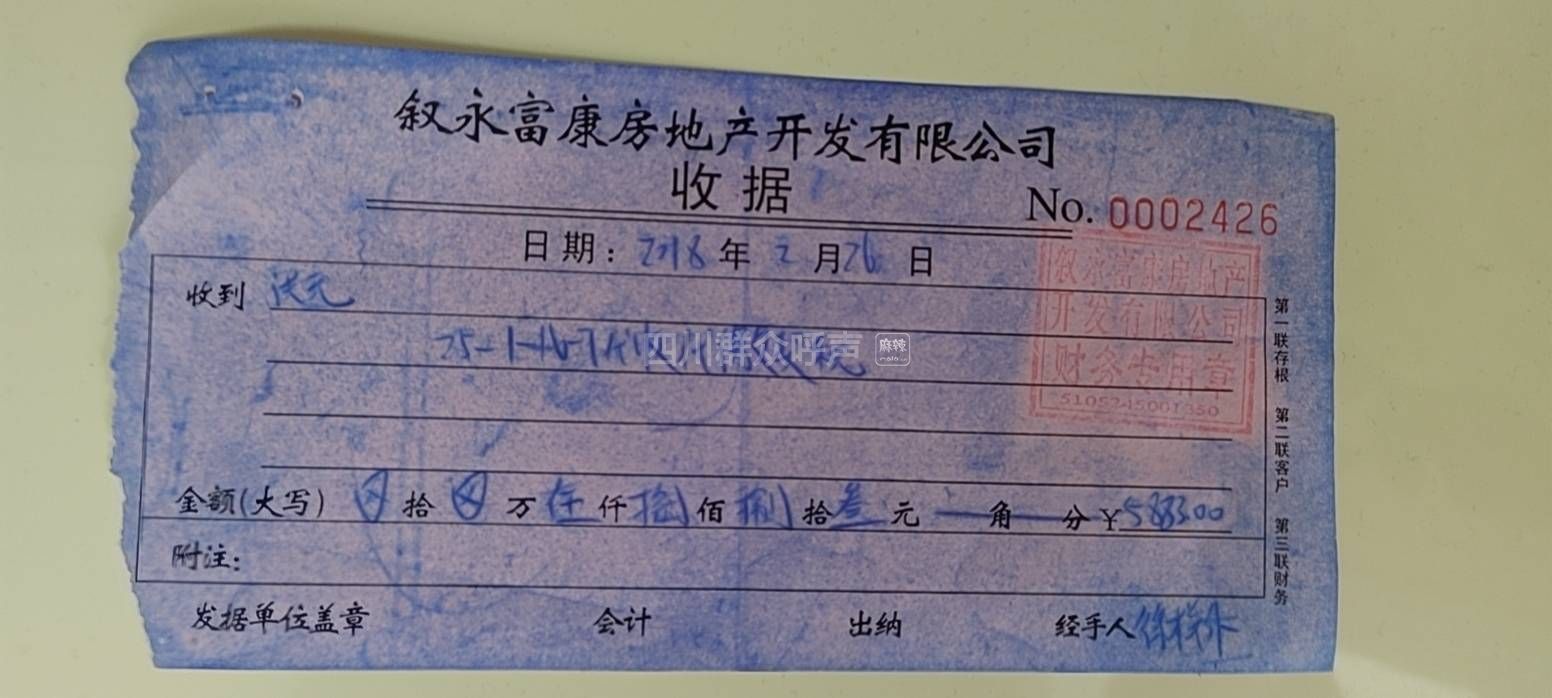 叙永富康房地产开发有限公司
收据
No. 0002426
日期: 2018 年 2 月 26 日
收到
叙永富康房地产
开发有限公司
财务专用章
5105245001350
25-1-16-7
四川群众呼声 麻辣
金额(大写) ⊗ 拾 ⊗ 万 伍 仟 捌 佰 捌 拾 叁 元 — 角 — 分 ¥ 5883.00
附注:
发据单位盖章 会计 出纳 经手人
第一联存根 第二联客户 第三联财务